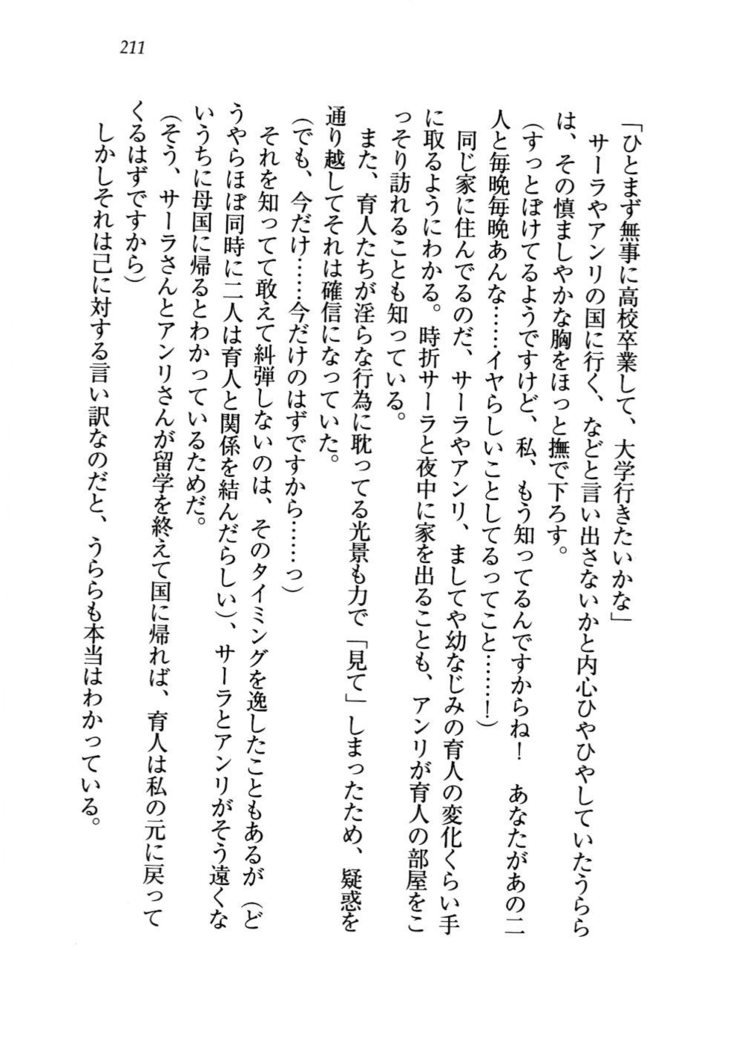 211
「ひとまず無事に高校卒業して、大学行きたいかな」
サーラやアンリの国に行く、などと言い出さないかと内心ひやひやしていたうらら
は、その慎ましやかな胸をほっと撫で下ろす。
（すっとぼけてるようですけど、私、もう知ってるんですからね！　あなたがあの二
人と毎晩毎晩あんな……イヤらしいことしてるってこと……！）
同じ家に住んでるのだ、サーラやアンリ、ましてや幼なじみの育人の変化くらい手
に取るようにわかる。時折サーラと夜中に家を出ることも、アンリが育人の部屋をこ
っそり訪れることも知っている。
また、育人たちが淫らな行為に耽ってる光景も力で「見て」しまったため、疑惑を
通り越してそれは確信になっていた。
（でも、今だけ……今だけのはずですから……っ）
それを知ってて敢えて糾弾しないのは、そのタイミングを逸したこともあるが（ど
うやらほぼ同時に二人は育人と関係を結んだらしい）、サーラとアンリがそう遠くな
いうちに母国に帰るとわかっているためだ。
（そう、サーラさんとアンリさんが留学を終えて国に帰れば、育人は私の元に戻って
くるはずですから）
しかしそれは己に対する言い訳なのだと、うららも本当はわかっている。